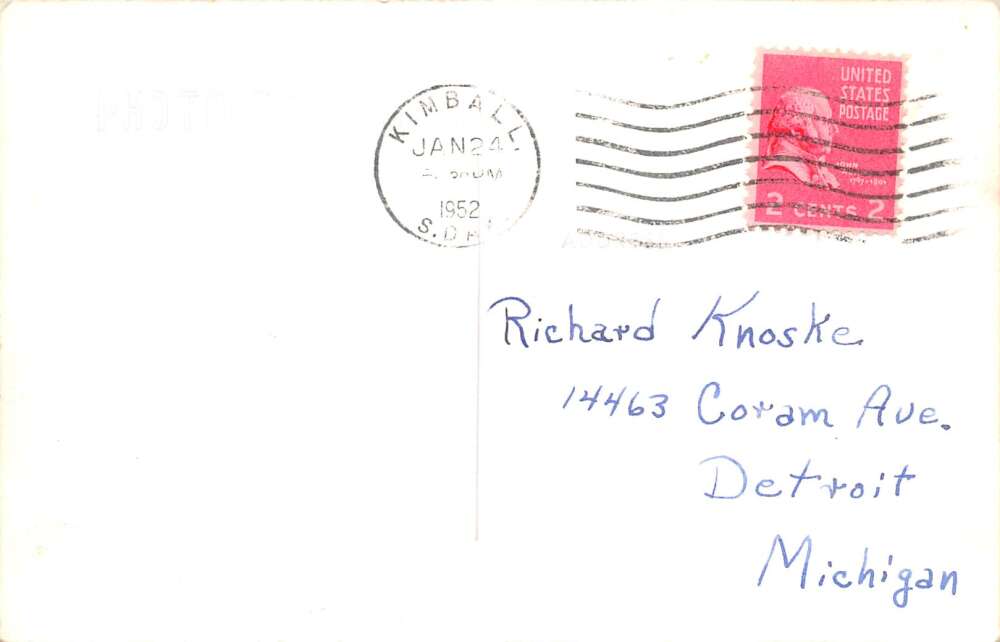 PHOTO
KIMBALL
JAN 24
PM
1952
S.DAK.
UNITED
STATES
POSTAGE
JOHN
2 CENTS 2
Richard Knoske
14463 Coram Ave.
Detroit
Michigan